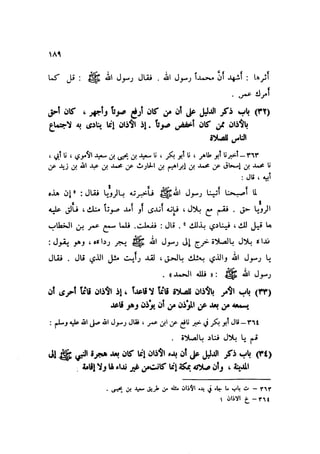 ١٨٩
أثرا : أشهد أن محمداً رسول الله . فقال رسول الله ﷺ : قل كما
أمرك عمر .
(٣٢) باب ذكر الدليل على أن من كان أرفع صوتاً وأجهر ، كان أحق
بالأذان ممن كان أخفض صوتاً . إذ الأذان إنما ينادى به لاجتماع
الناس للصلاة
٣٦٣ – أخبرنا أبو طاهر ، نا أبو بكر ، نا سعيد بن يحيى بن سعيد الأموي ، نا أبي ،
نا محمد بن إسحاق عن محمد بن إبراهيم بن الحارث عن محمد بن عبد الله بن زيد عن
أبيه ، قال :
لما أصبحنا أتينا رسول الله ﷺ فأخبرته بالرؤيا فقال : « إن هذه
الرؤيا حق . فقم مع بلال ، فإنه أندى أو أمد صوتاً منك ، فألق عليه
ما قيل لك ، فينادي بذلك » . قال : ففعلت . فلما سمع عمر بن الخطاب
نداء بلال بالصلاة خرج إلى رسول الله ﷺ يجر رداءه ، وهو يقول :
يا رسول الله والذي بعثك بالحق ، لقد رأيت مثل الذي قال . فقال
رسول الله ﷺ : « فلله الحمد » .
(٣٣) باب الأمر بالأذان للصلاة قائماً لا قاعداً ، إذ الأذان قائماً أحرى أن
يسمعه من بعد عن المؤذن من أن يؤذن وهو قاعد
٣٦٤ – قال أبو بكر في خبر نافع عن ابن عمر ، فقال رسول الله صلى الله عليه وسلم :
قم يا بلال فناد بالصلاة .
(٣٤) باب ذكر الدليل على أن بدء الأذان إنما كان بعد هجرة النبي ﷺ إلى
المدينة ، وأن صلاته بمكة إنما كانت من غير نداء لها ولا إقامة .
٣٦٣ – ت باب ما جاء في بدء الأذان مثله من طريق سعيد بن يحيى .
٣٦٤ – خ الأذان ١